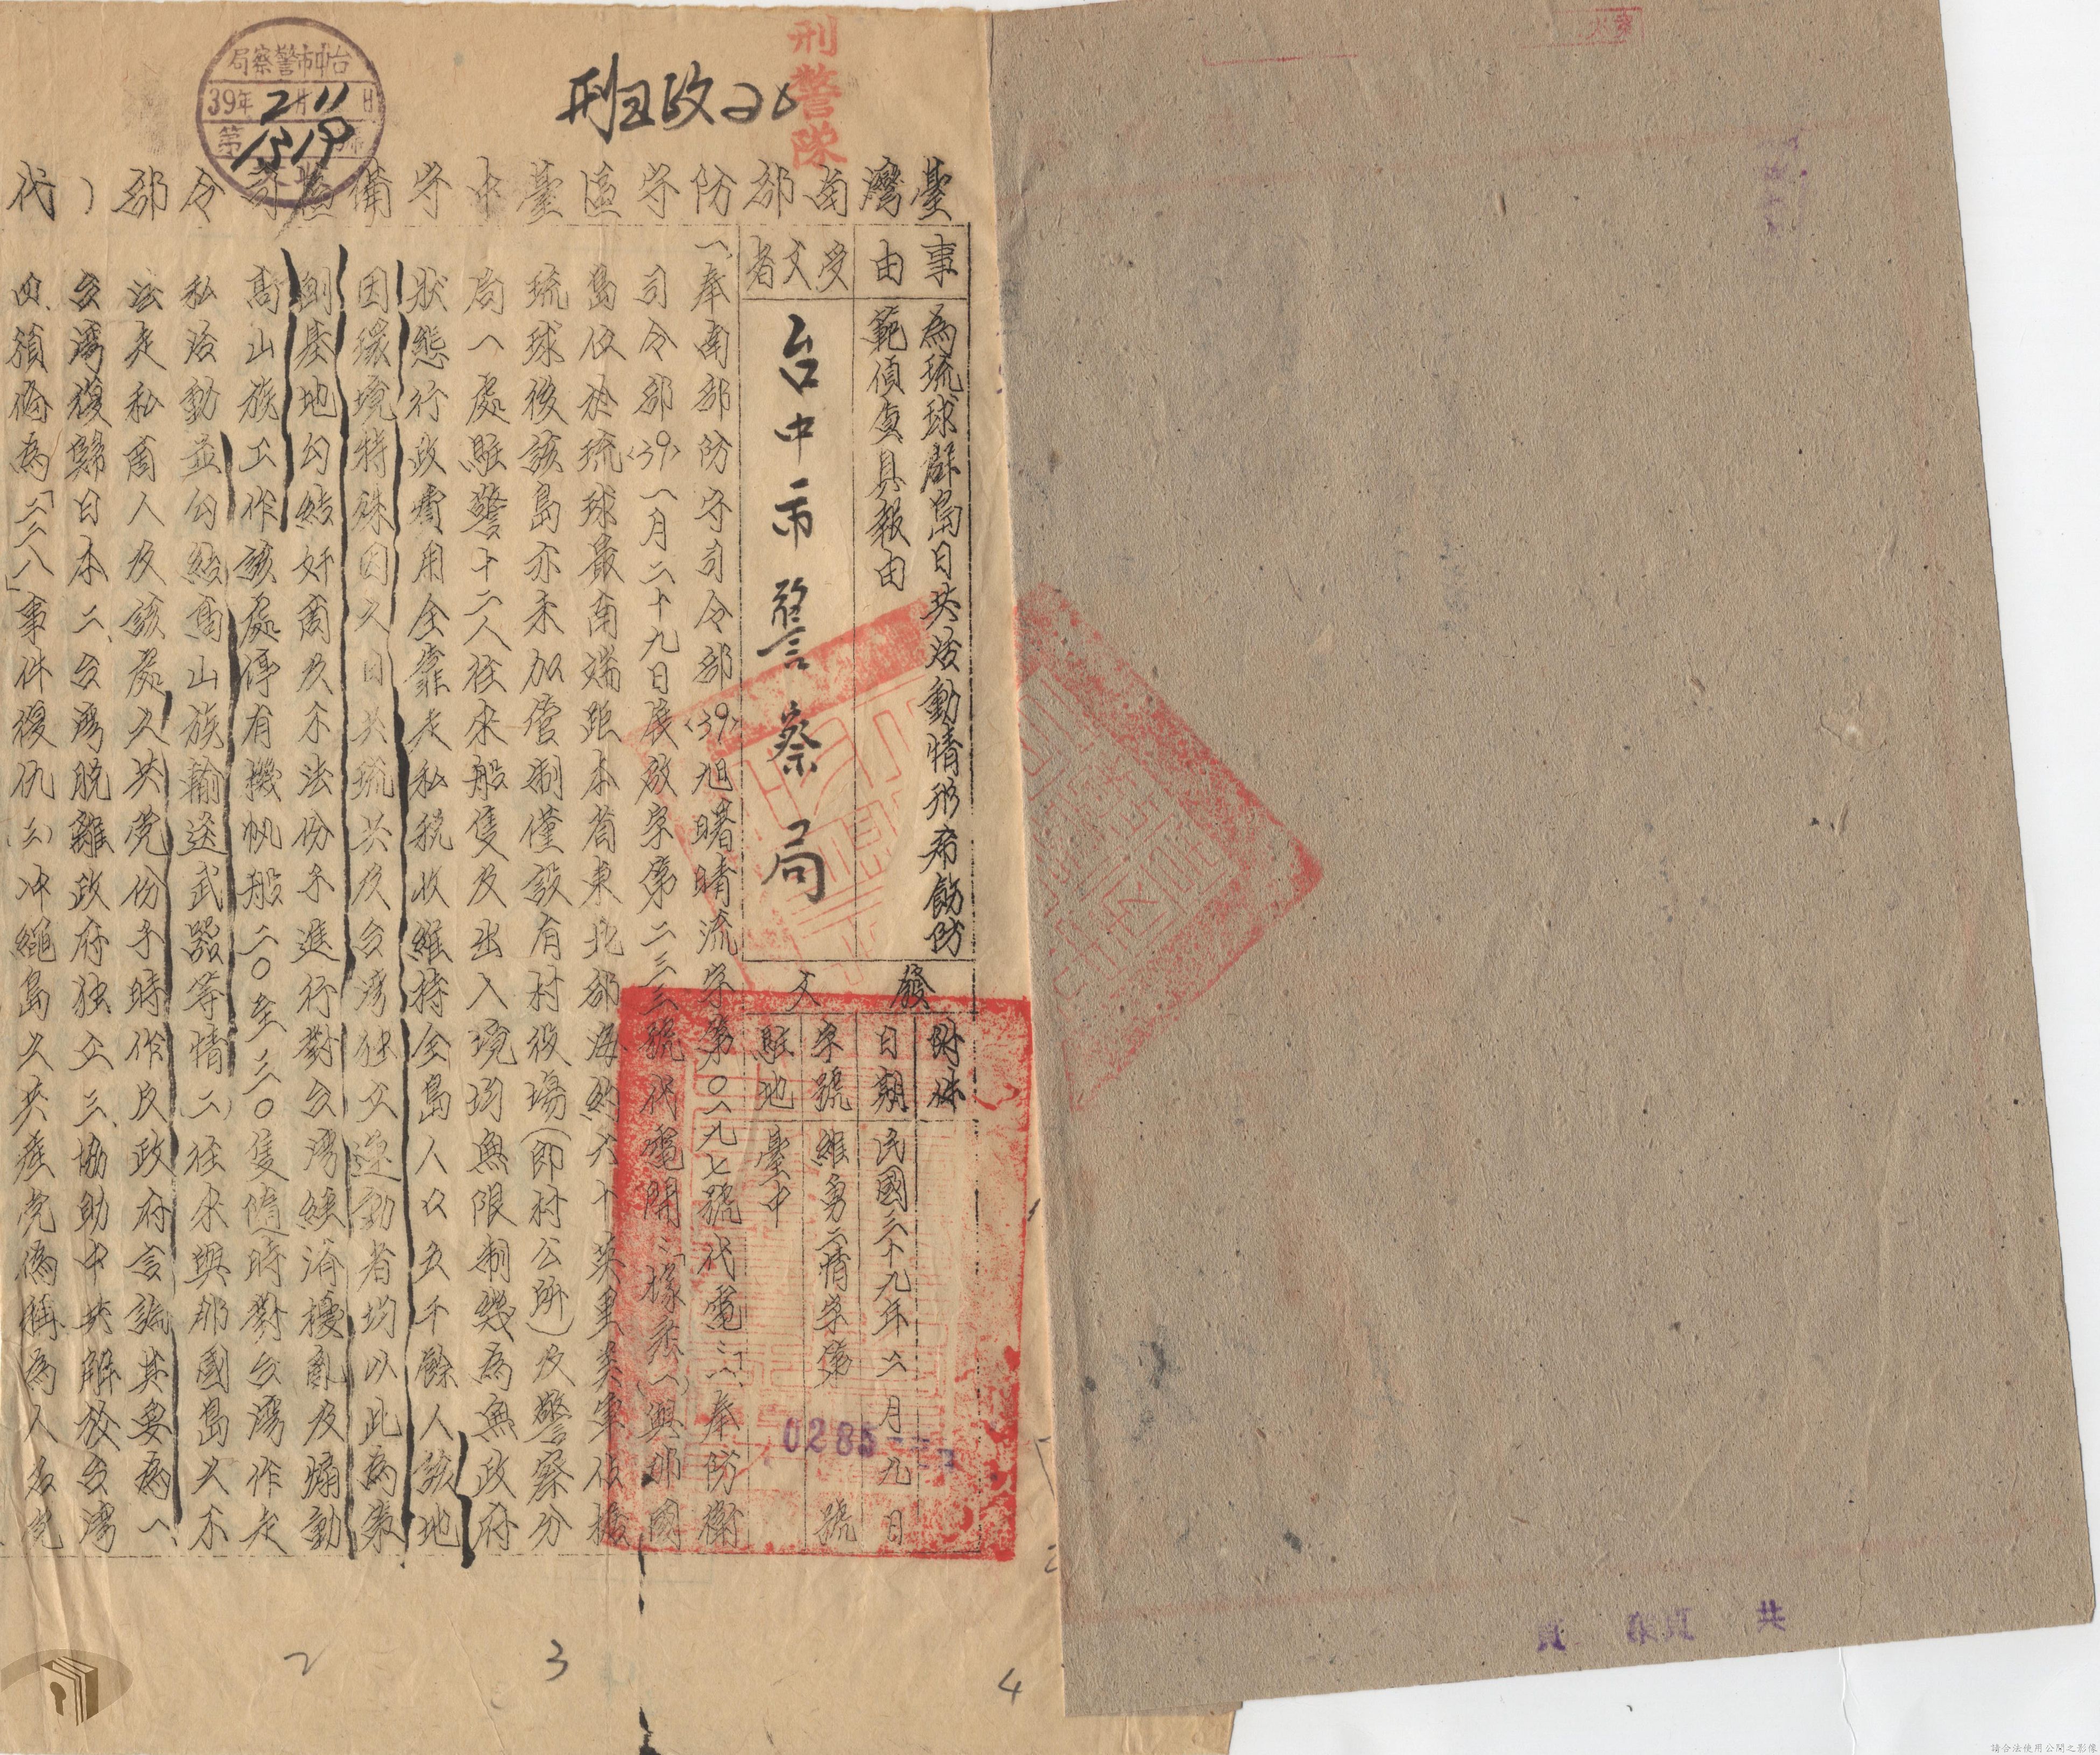 刑警隊
刑 政
台中市警察局
39年2月11日
第1519號
臺灣南部防守區臺中守備區司令部（代
事由
為琉球群島日共活動情形希飭防
範偵查具報由
受文者
台中市警察局
發文
附件
日期 民國三十九年二月九日
字號 維勇二情字第 0285 號
駐地 臺中
一、奉南部防守司令部〈39〉旭曙晴流字第〇一九七號代電：「一、奉防衛
司令部〈39〉一月二十九日展啟字第二三三號代電開：「據悉(一)與那國
島位於琉球最南端距本省東北部海約六十英里美軍佔據
琉球後該島亦未加管制僅設有村役場（即村公所）及警察分
局一處駐警十二人往來船隻及出入境均無限制幾為無政府
狀態行政費用全靠走私稅收維持全島人口五千餘人該地
因環境特殊因之日共琉共及台灣獨立運動者均以此為策
劃基地勾結奸商及不法份子進行對台灣經濟擾亂及煽動
高山族工作該處停有機帆船二〇至三〇隻隨時對台灣作走
私活動並勾結高山族輸送武器等情(二)往來與那國島之不
法走私商人及該處之共党份子時作反政府言論其要為一、
台灣復歸日本二、台灣脫離政府独立三、協助中共解放台灣
四、須偽為「二二八」事件復仇(三)冲繩島之共產党偽稱為人民党
2
3
4
共 頁 第 頁
請合法使用公開之影像